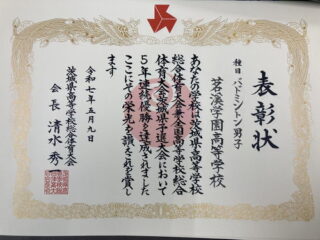 表彰状
種目 バドミントン男子
茗溪学園高等学校
あなたの学校は茨城県高等学校
総合体育大会兼全国高等学校総合
体育大会茨城県予選大会において
5年連続優勝を達成されました
ここにその栄光を讃えこれを賞し
ます
令和七年五月九日
茨城県高等学校総合体育大会
会長 清水秀一